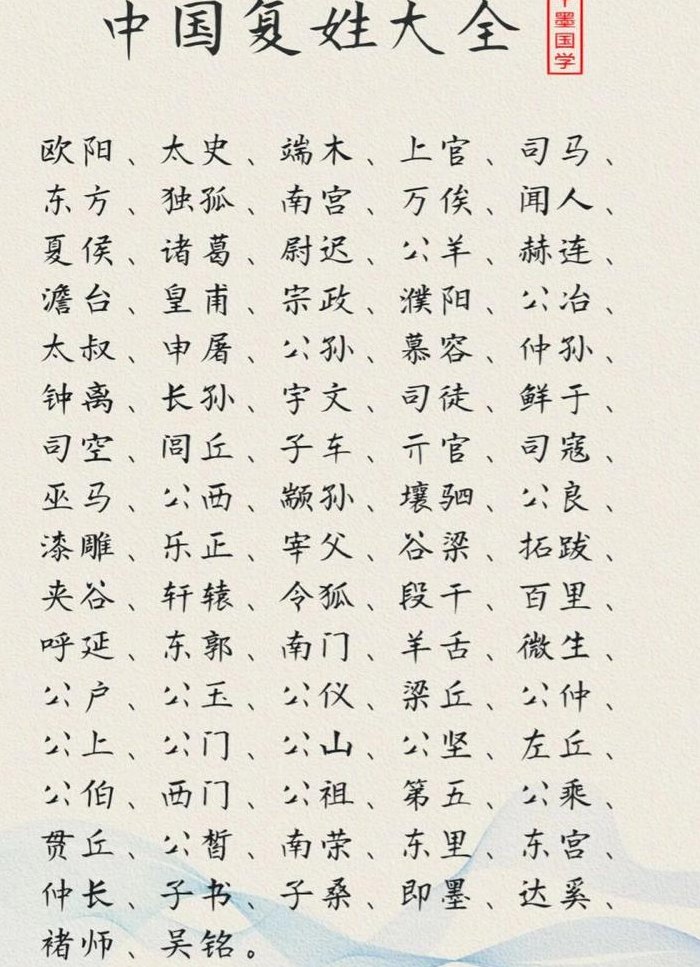 中国复姓大全
墨国学
欧阳、太史、端木、上官、司马、
东方、独孤、南宫、万俟、闻人、
夏侯、诸葛、尉迟、公羊、赫连、
澹台、皇甫、宗政、濮阳、公冶、
太叔、申屠、公孙、慕容、仲孙、
钟离、长孙、宇文、司徒、鲜于、
司空、闾丘、子车、亓官、司寇、
巫马、公西、颛孙、壤驷、公良、
漆雕、乐正、宰父、谷梁、拓跋、
夹谷、轩辕、令狐、段干、百里、
呼延、东郭、南门、羊舌、微生、
公户、公玉、公仪、梁丘、公仲、
公上、公门、公山、公坚、左丘、
公伯、西门、公祖、第五、公乘、
贯丘、公皙、南荣、东里、东宫、
仲长、子书、子桑、即墨、达奚、
褚师、吴铭。